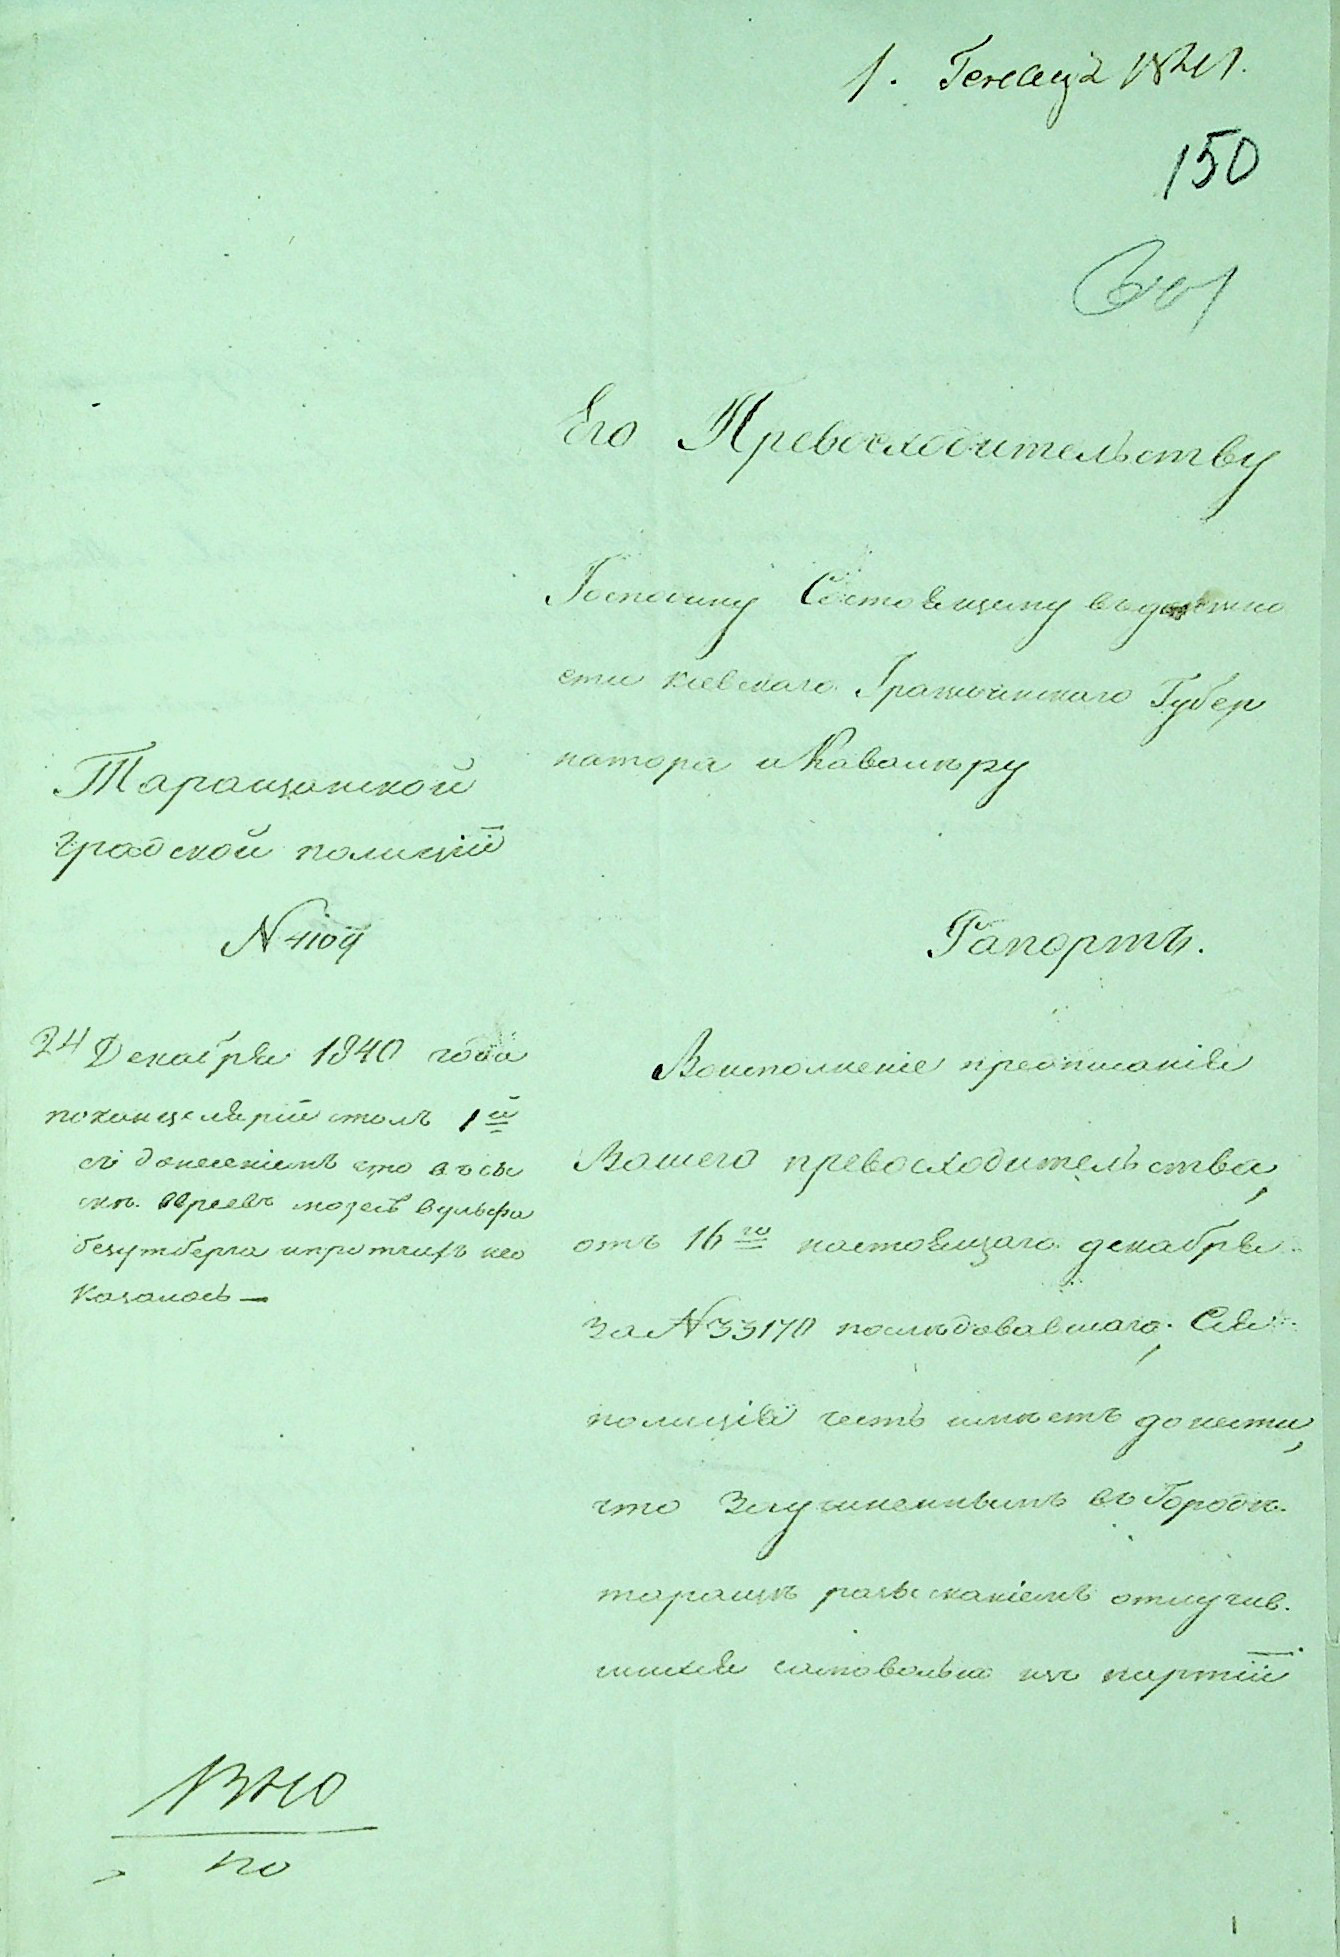 1. Генваря 1841.
150
Его Превосходительству
Господину Состоящему въ должно
сти киевскаго Гражданскаго Губер
натора и Кавалеру
Таращанской
градской полиціи
N 4109
24 Декабря 1840 года
по канцеляріи столъ 1й
съ донесеніемъ что въ сы
скъ евреевъ
и протчихъ не о
казалось —
Рапортъ.
Воисполненіе предписанія
Вашего превосходительства,
отъ 16го настоящаго декабря
за N 33170 последовавшаго, Сія
полиція честь имѣетъ донести,
что Заучиненнымъ въ Городѣ
таращѣ розысканіемъ отлучив
шихся самовольно изъ партіи
по